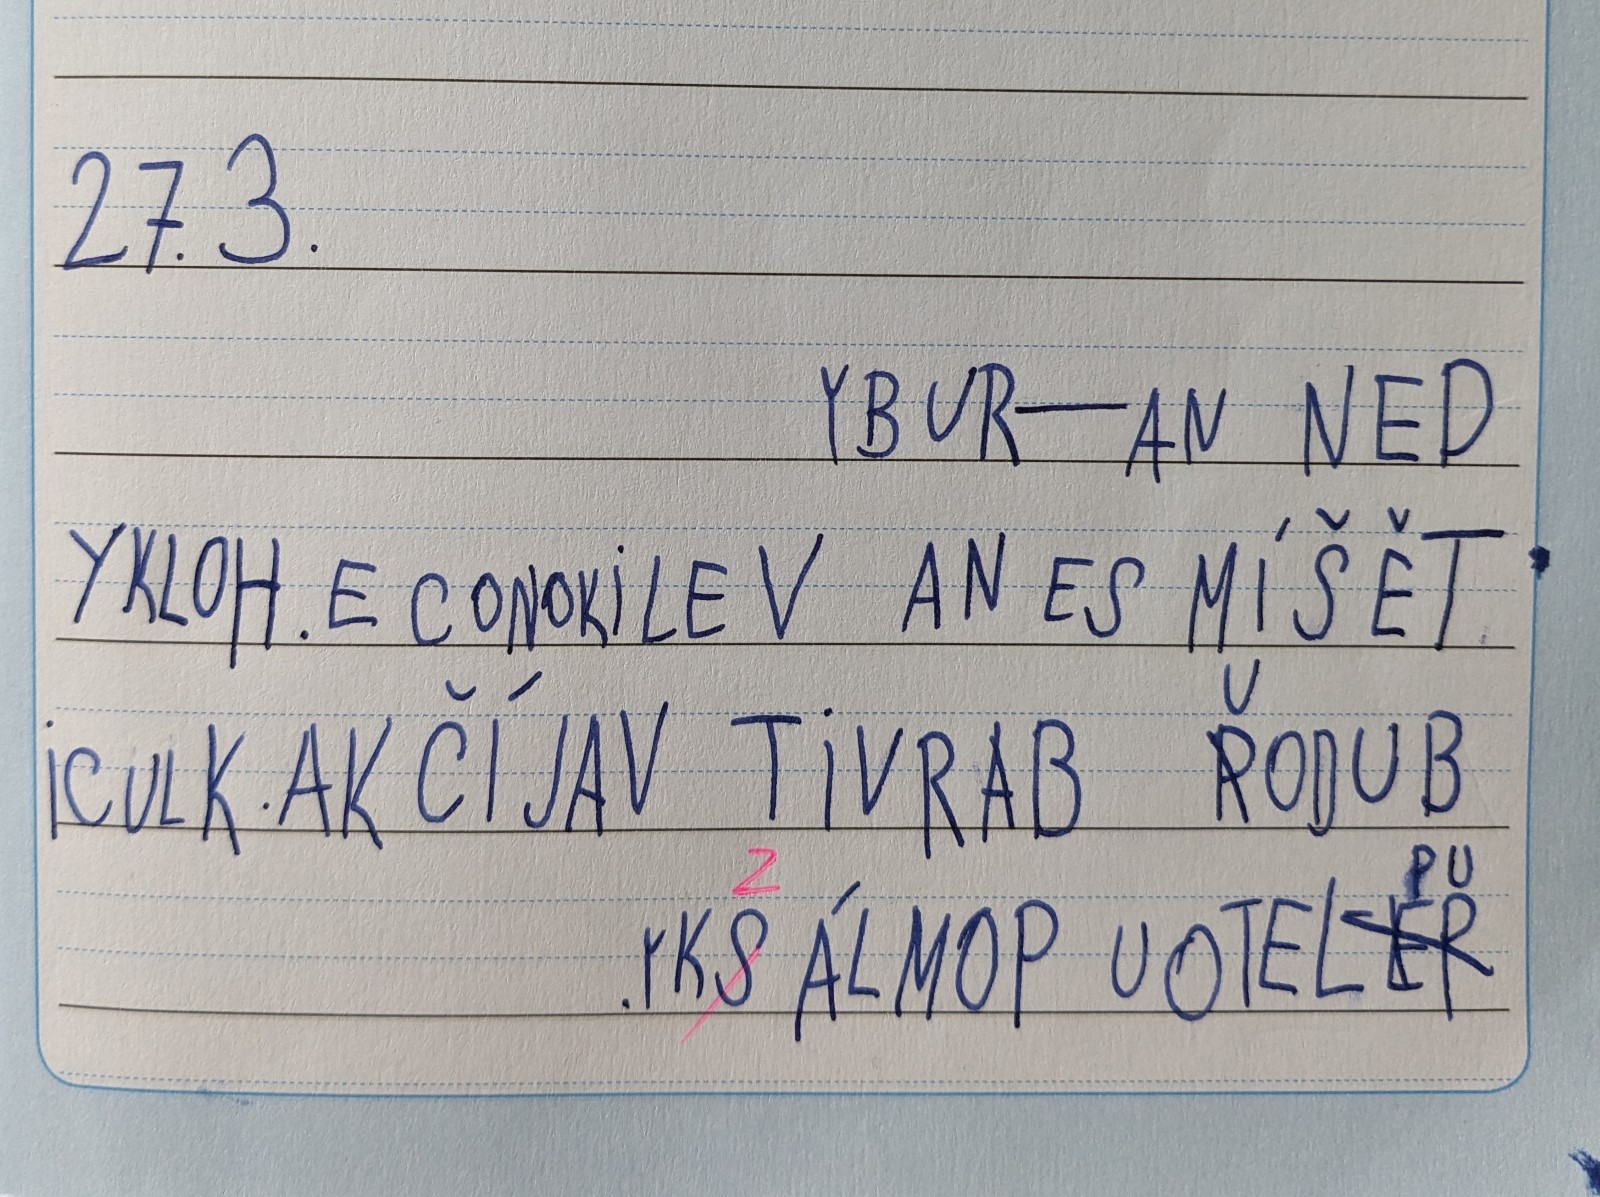 27.3.
YBUR—AN NED
YKLOH.E CONOKiLEV AN ES MÍŠĚT
U
iCULK.AKČÍJAV TiVRAB RODUB
Z PU
.YKS ÁLMOP UOTELER